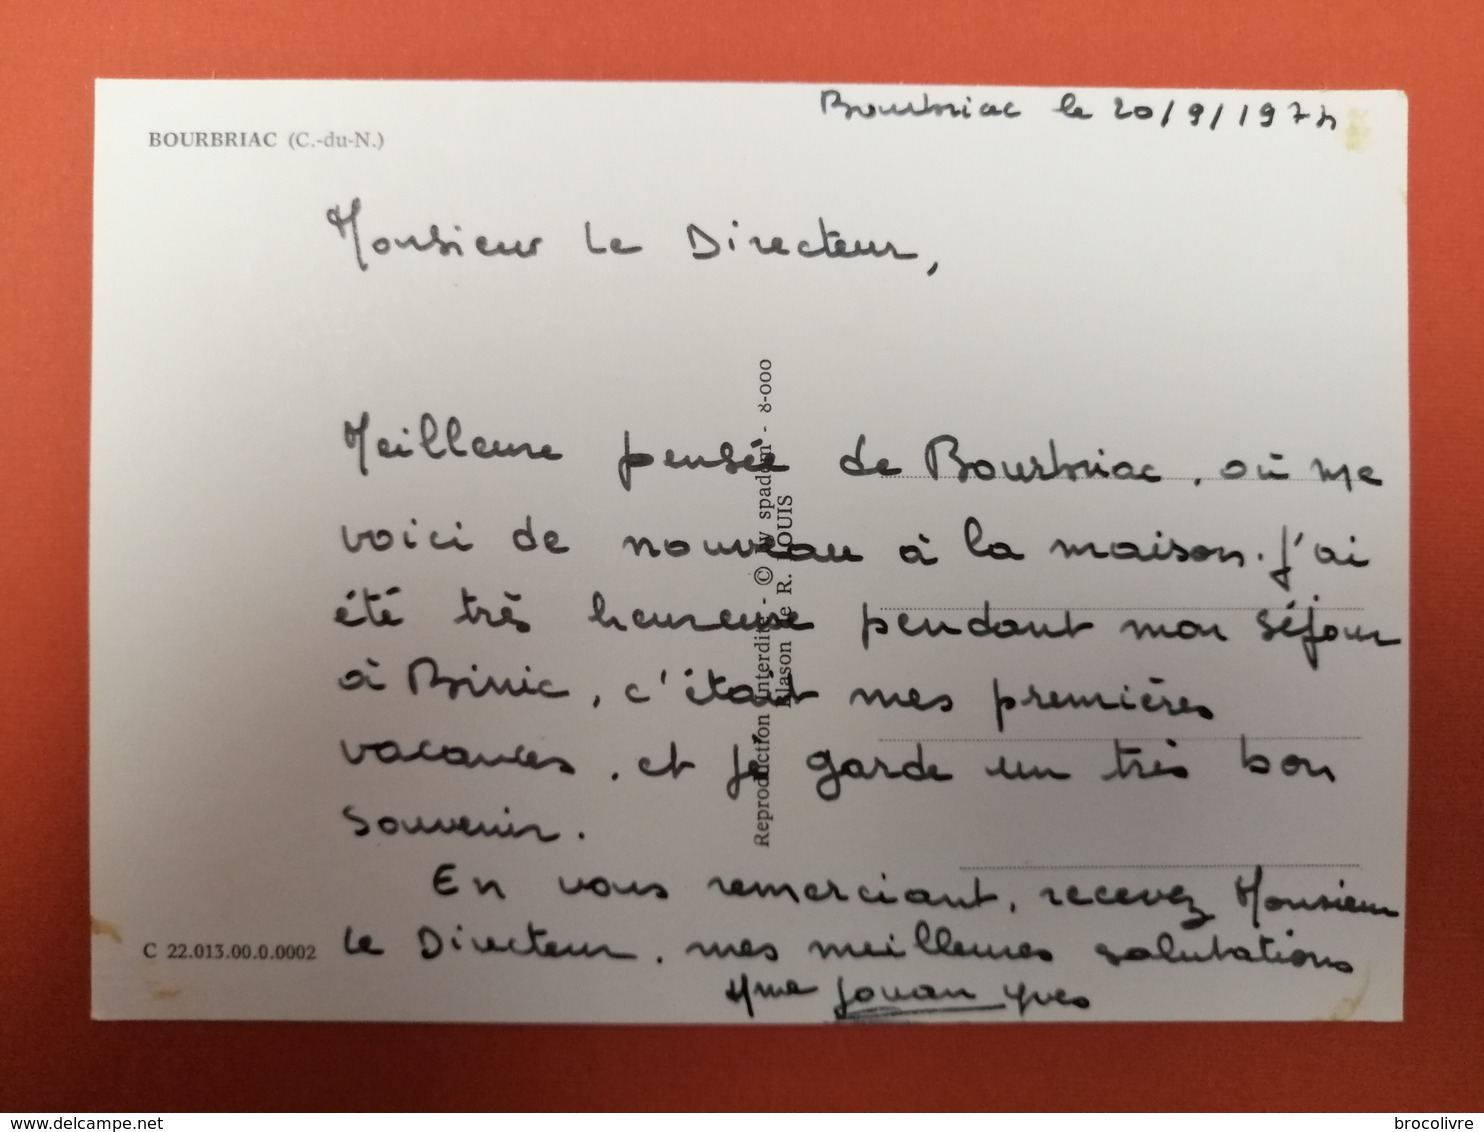 Bourbriac le 20/9/1974
BOURBRIAC (C.-du-N.)
Monsieur Le Directeur,
Meilleure pensée de Bourbriac, où me
voici de nouveau à la maison. J'ai
été très heureuse pendant mon séjour
à Binic, c'était mes premières
vacances, et je garde un très bon
souvenir.
En vous remerciant, recevez Monsieur
Le Directeur, mes meilleures salutations
Mme Jouan Yves
Reproduction Interdite - © by spadem - 8-000
Blason de R. LOUIS
C 22.013.00.0.0002
www.delcampe.net
brocolivre